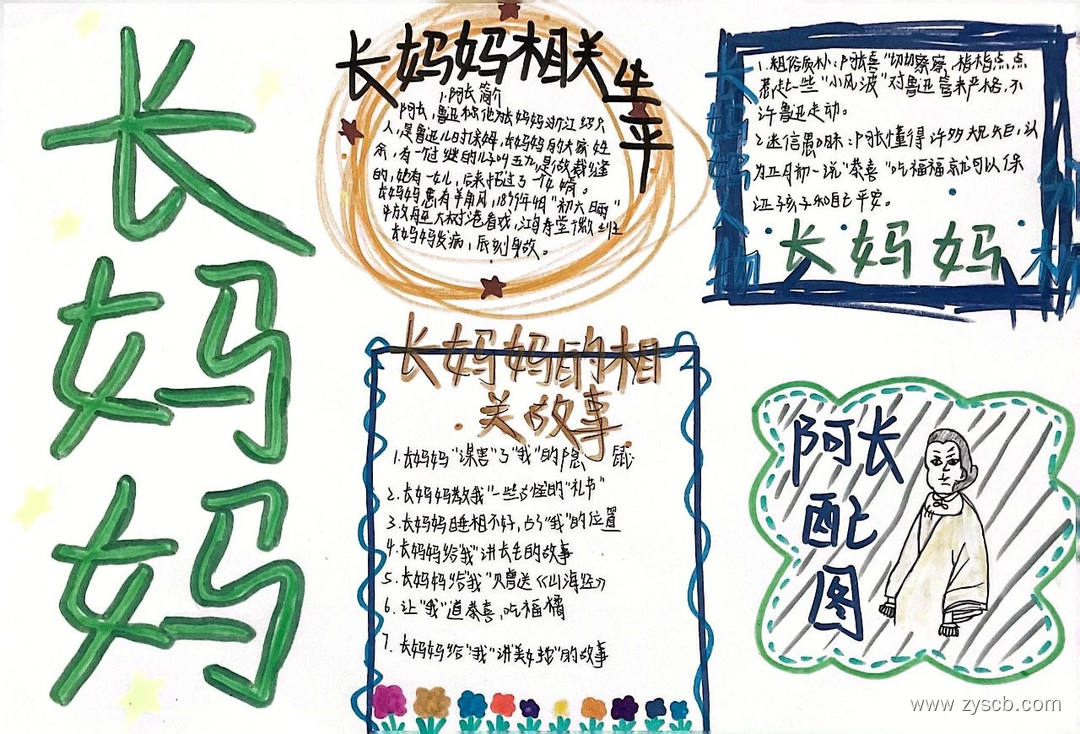 长
妈
妈
长妈妈相关生平
1.阿长简介
阿长,鲁迅称他为长妈妈浙江绍兴
人,是鲁迅儿时保姆,长妈妈的夫家姓
余,有一过继的儿子叫五九,是做裁缝
的,她有一女儿,后来招过了一个女婿。
长妈妈患有羊角风,1899年4月"初六日晴"
中放舟至大树港看戏,鸿寿堂徽班
长妈妈发病,辰刻身故。
长妈妈人物
1.粗俗质朴:阿长喜"切切察察,指指点点
惹起一些"小风波"对鲁迅管束严格,不
许鲁迅走动。
2.迷信愚昧:阿长懂得许多大规矩,认
为正月初一说"恭喜"吃福橘就可以保
证孩子和自己平安。
长妈妈
长妈妈的相
关故事
1.长妈妈"谋害"了"我"的隐 鼠
2.长妈妈教我"一些古怪的"礼节"
3.长妈妈睡相不好,占"我"的位置
4.长妈妈给"我"讲长毛的故事
5.长妈妈给"我"买曾送《山海经》
6.让"我"道恭喜,吃福橘
7.长妈妈给"我"讲美女蛇"的故事
阿长
配
图
www.zyscb.com